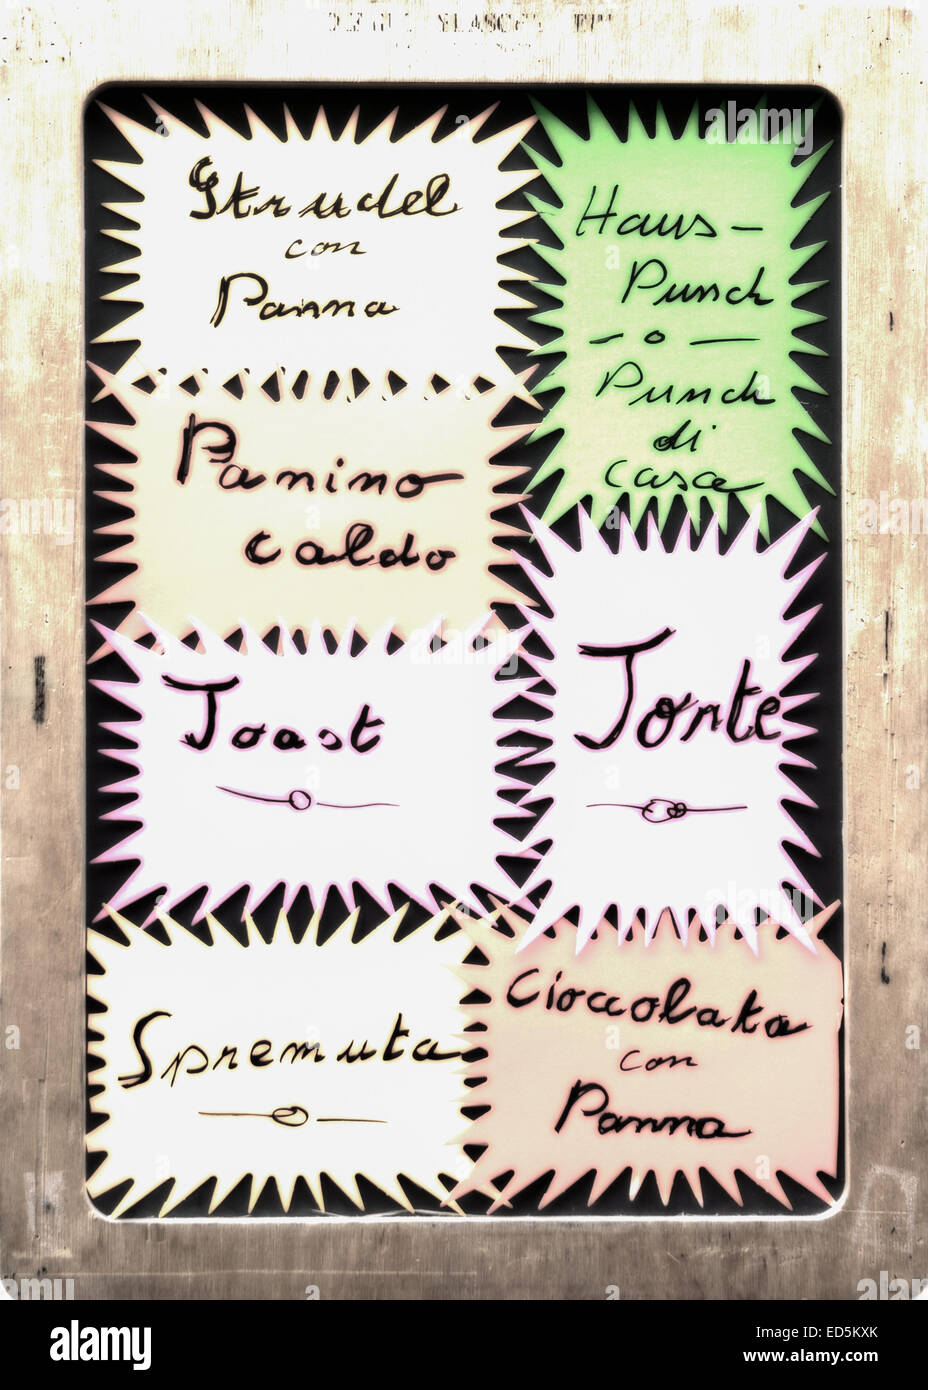 Strudel
con
Panna
Haus-
Punch
-o-
Punch
di
casa
Panino
caldo
Toast
Torte
Spremuta
Cioccolata
con
Panna
alamy stock photo
ED5KXK
www.alamy.com